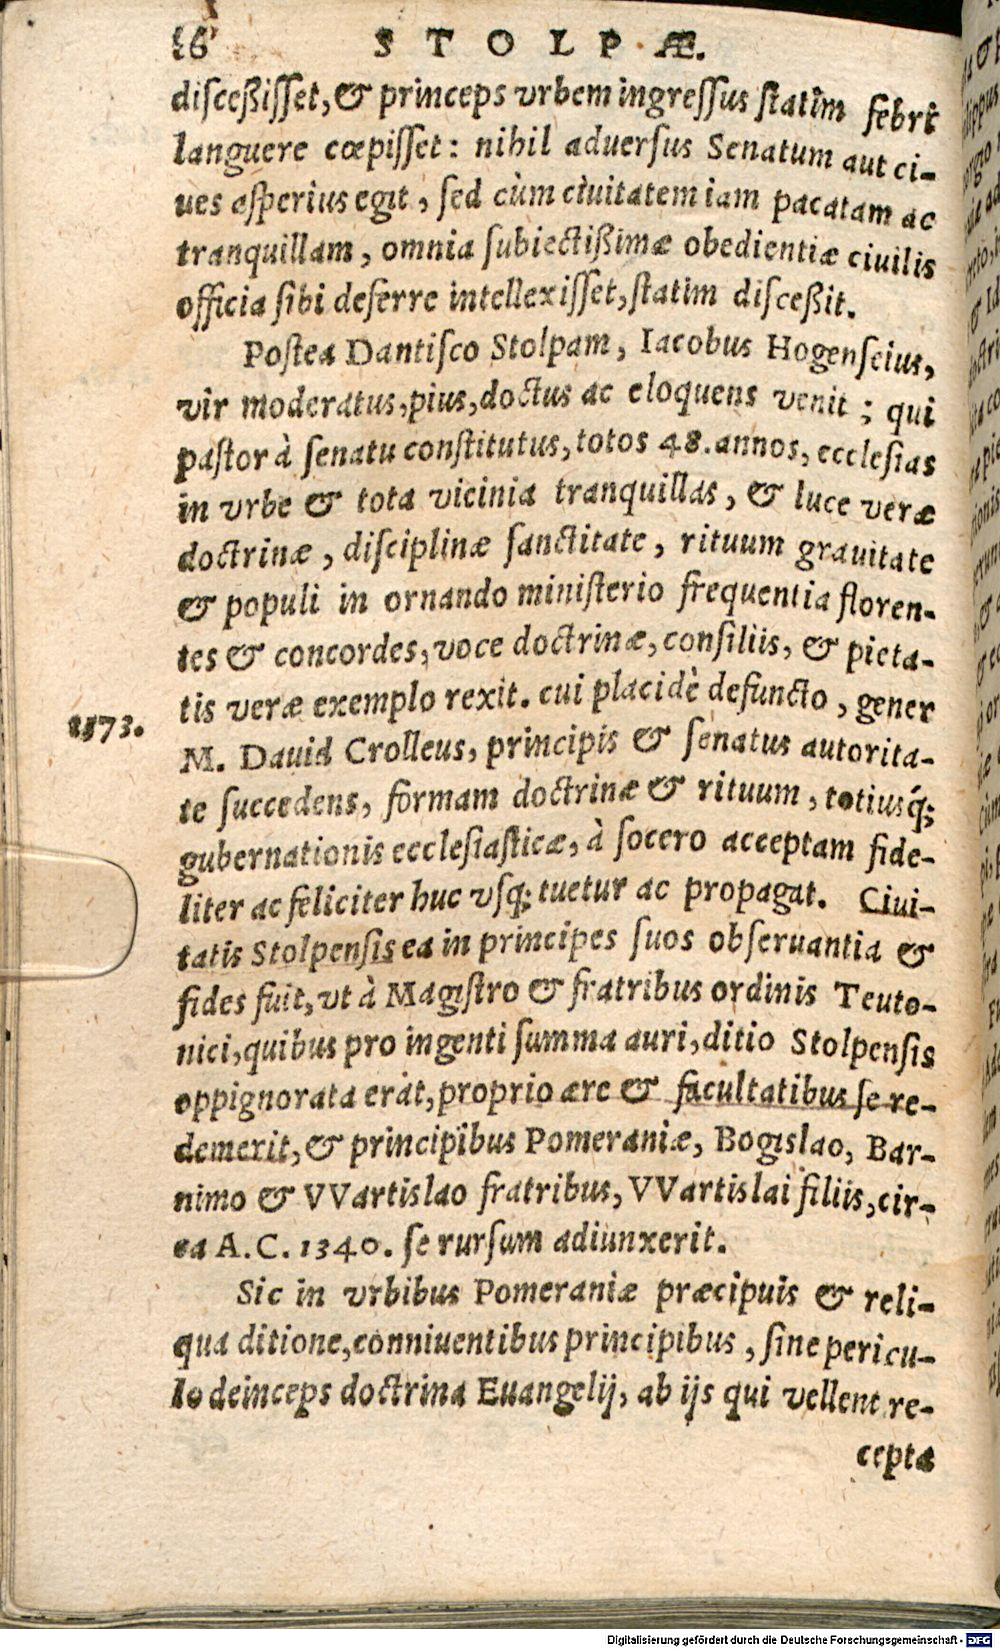 16 STOLPÆ.
diſceßiſſet, & princeps vrbem ingreſſus ſtatim febri
languere cœpiſſet: nihil aduerſus Senatum aut ci-
ues aſperius egit, ſed cùm ciuitatem iam pacatam ac
tranquillam, omnia ſubiectißimæ obedientiæ ciuilis
officia ſibi deferre intellexiſſet, ſtatim diſceßit.
Poſtea Dantiſco Stolpam, Iacobus Hogenſeius,
vir moderatus, pius, doctus ac eloquens venit; qui
paſtor à ſenatu conſtitutus, totos 48. annos, eccleſias
in vrbe & tota vicinia tranquillas, & luce veræ
doctrinæ, diſciplinæ ſanctitate, rituum grauitate
& populi in ornando miniſterio frequentia floren-
tes & concordes, voce doctrinæ, conſiliis, & pieta-
tis veræ exemplo rexit. cui placidè defuncto, gener
1573.
M. Dauid Crolleus, principis & ſenatus autorita-
te ſuccedens, formam doctrinæ & rituum, totiusq́;
gubernationis eccleſiaſticæ, à ſocero acceptam fide-
liter ac feliciter huc vſq; tuetur ac propagat. Ciui-
tatis Stolpenſis ea in principes ſuos obſeruantia &
fides fuit, vt à Magiſtro & fratribus ordinis Teuto-
nici, quibus pro ingenti ſumma auri, ditio Stolpenſis
oppignorata erat, proprio ære & facultatibus ſe re-
demerit, & principibus Pomeraniæ, Bogislao, Bar-
nimo & VVartislao fratribus, VVartislai filiis, cir-
ca A.C. 1340. ſe rurſum adiunxerit.
Sic in vrbibus Pomeraniæ præcipuis & reli-
qua ditione, conniuentibus principibus, ſine pericu-
lo deinceps doctrina Euangelij, ab ijs qui vellent re-
cepta
Digitalisierung gefördert durch die Deutsche Forschungsgemeinschaft - DFG